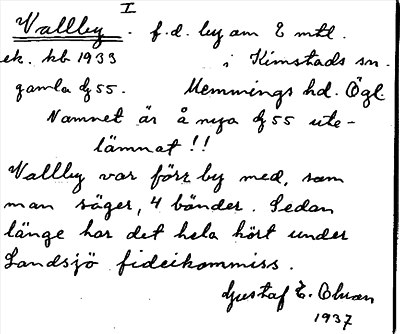 I
Vallby. f.d. by om 2 mtl.
ek. kb 1933 i Kimstads sn.
gamla Gs 55. Memmings hd. Ögl.
Namnet är å nya Gs 55 ute-
lämnat!!
Vallby var förr by med, som
man säger, 4 bönder. Sedan
länge har det hela hört under
Landsjö fideikommiss.
Gustaf E. Olsson
1937